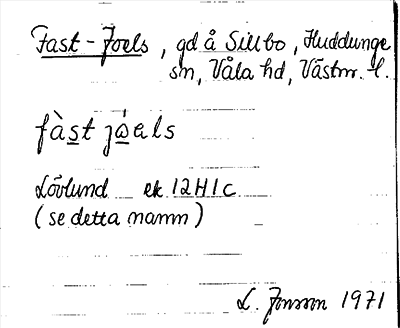 Fast-Joels, gd å Sillbo, Huddunge
sn, Våla hd, Västm. l.
fàst jóəls
Lövlund ek 12H1c
(se detta namn)
L. Jonsson 1971